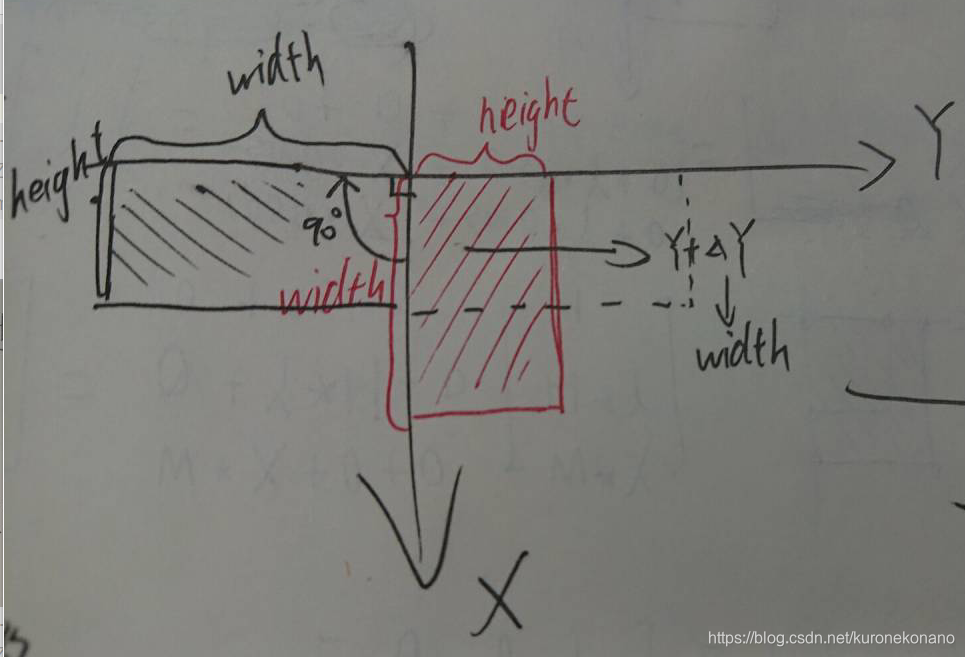 width
height
Y
height
90°
width
Y+ΔY
width
X
https://blog.csdn.net/kuronekonano